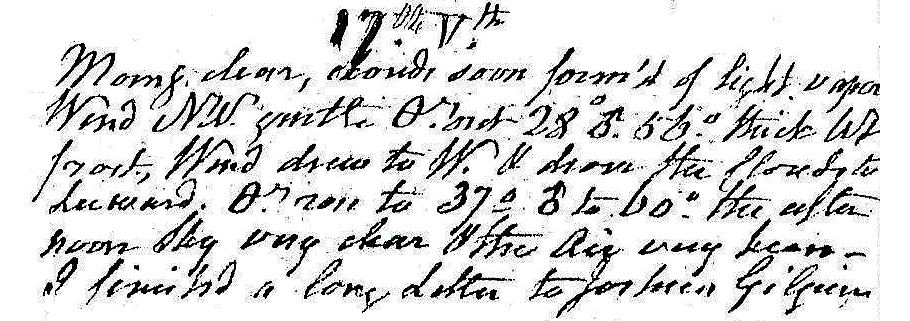 17th Vth
Morng. clear, clouds soon form'd of light vapor
Wind NW. gentle Or. out 28° & 56° thick Wt
frost, Wind drew to W. & drove the Clouds to
Leeward. Or. rose to 37° & to 60° the after
noon Sky very clear & the Air very keen –
I finish'd a long Letter to Joshua Gilpin